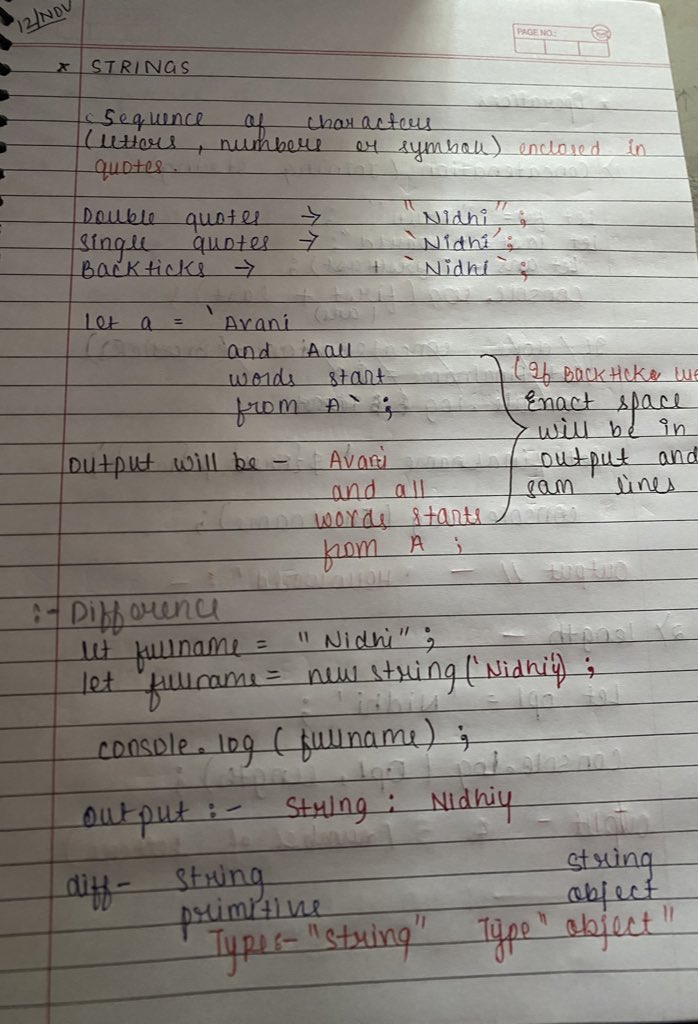 12/NOV
PAGE NO.:
* STRINGS
Sequence of characters
(letters, numbers or symbols) enclosed in
quotes.
Double quotes → "Nidhi";
Single quotes → 'Nidhi';
Backticks → `Nidhi`;
let a = `Avani
and Aall
words start
from A`;
(If BACKticks
Exact space
will be in
output and
sam lines
output will be - Avani
and all
words starts
from A ;
:- Difference
let fullname = "Nidhi";
let fullname = new string('Nidhiy');
console.log (fullname) ;
output :- String : Nidhiy
diff- string string
primitive object
Type:- "string" Type "object"